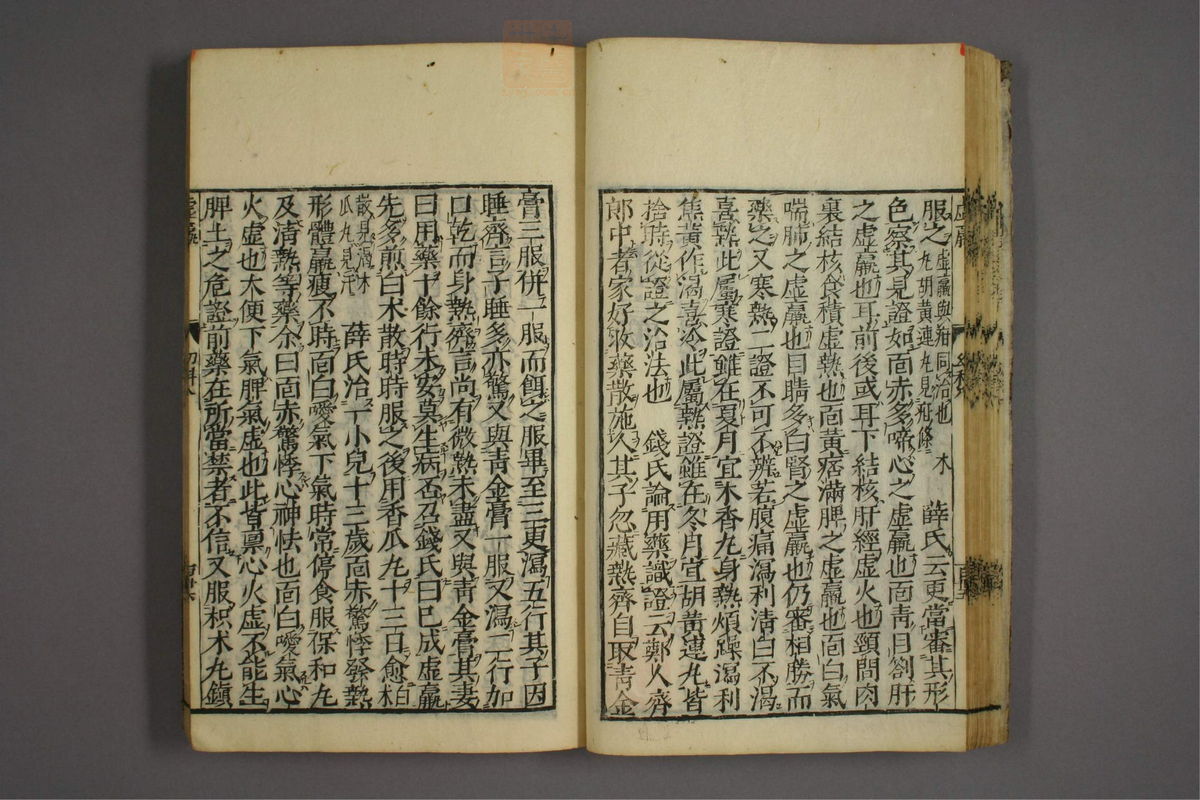 服之虛羸與疳同治也木
丸胡黃連丸見疳條　薛氏云更當審其形
色察其見證如面赤多啼心之虛羸也面青目劄肝
之虛羸也耳前後或耳下結核肝經虛火也頸間肉
裏結核食積虛熱也面黃痞滿脾之虛羸也面白氣
喘肺之虛羸也目睛多白腎之虛羸也仍審相勝而
藥之又寒熱二證不可不辨若腹痛瀉利清白不渴
喜熱此屬寒證雖在夏月宜木香丸身熱煩躁瀉利
焦黃作渴喜冷此屬熱證雖在冬月宜胡黃連丸皆
捨時從證之治法也　錢氏論用藥識證云鄭人齊
郎中者家好收藥散施人其子忽臟熱齊自取青金
膏三服併一服而餌之服畢至三更瀉五行其子因
睡齊言子睡多亦驚又與青金膏一服又瀉二行加
口乾而身熱齊言尚有微熱未盡又與青金膏其妻
曰用藥十餘行未安莫生病否召錢氏曰已成虛羸
先多煎白朮散時時服之後用香瓜丸十三日愈柏
散見渴休
瓜丸見汗　薛氏治一小兒十三歲面赤驚悸發熱
形體羸瘦不時面白噯氣下氣時常停食服保和丸
及清熱等藥余曰面赤驚悸心神怯也面白噯氣心
火虛也大便下氣脾氣虛也此皆禀心火虛不能生
脾土之危證前藥在所當禁者不信又服枳朮丸鎮
虛羸
幼科八